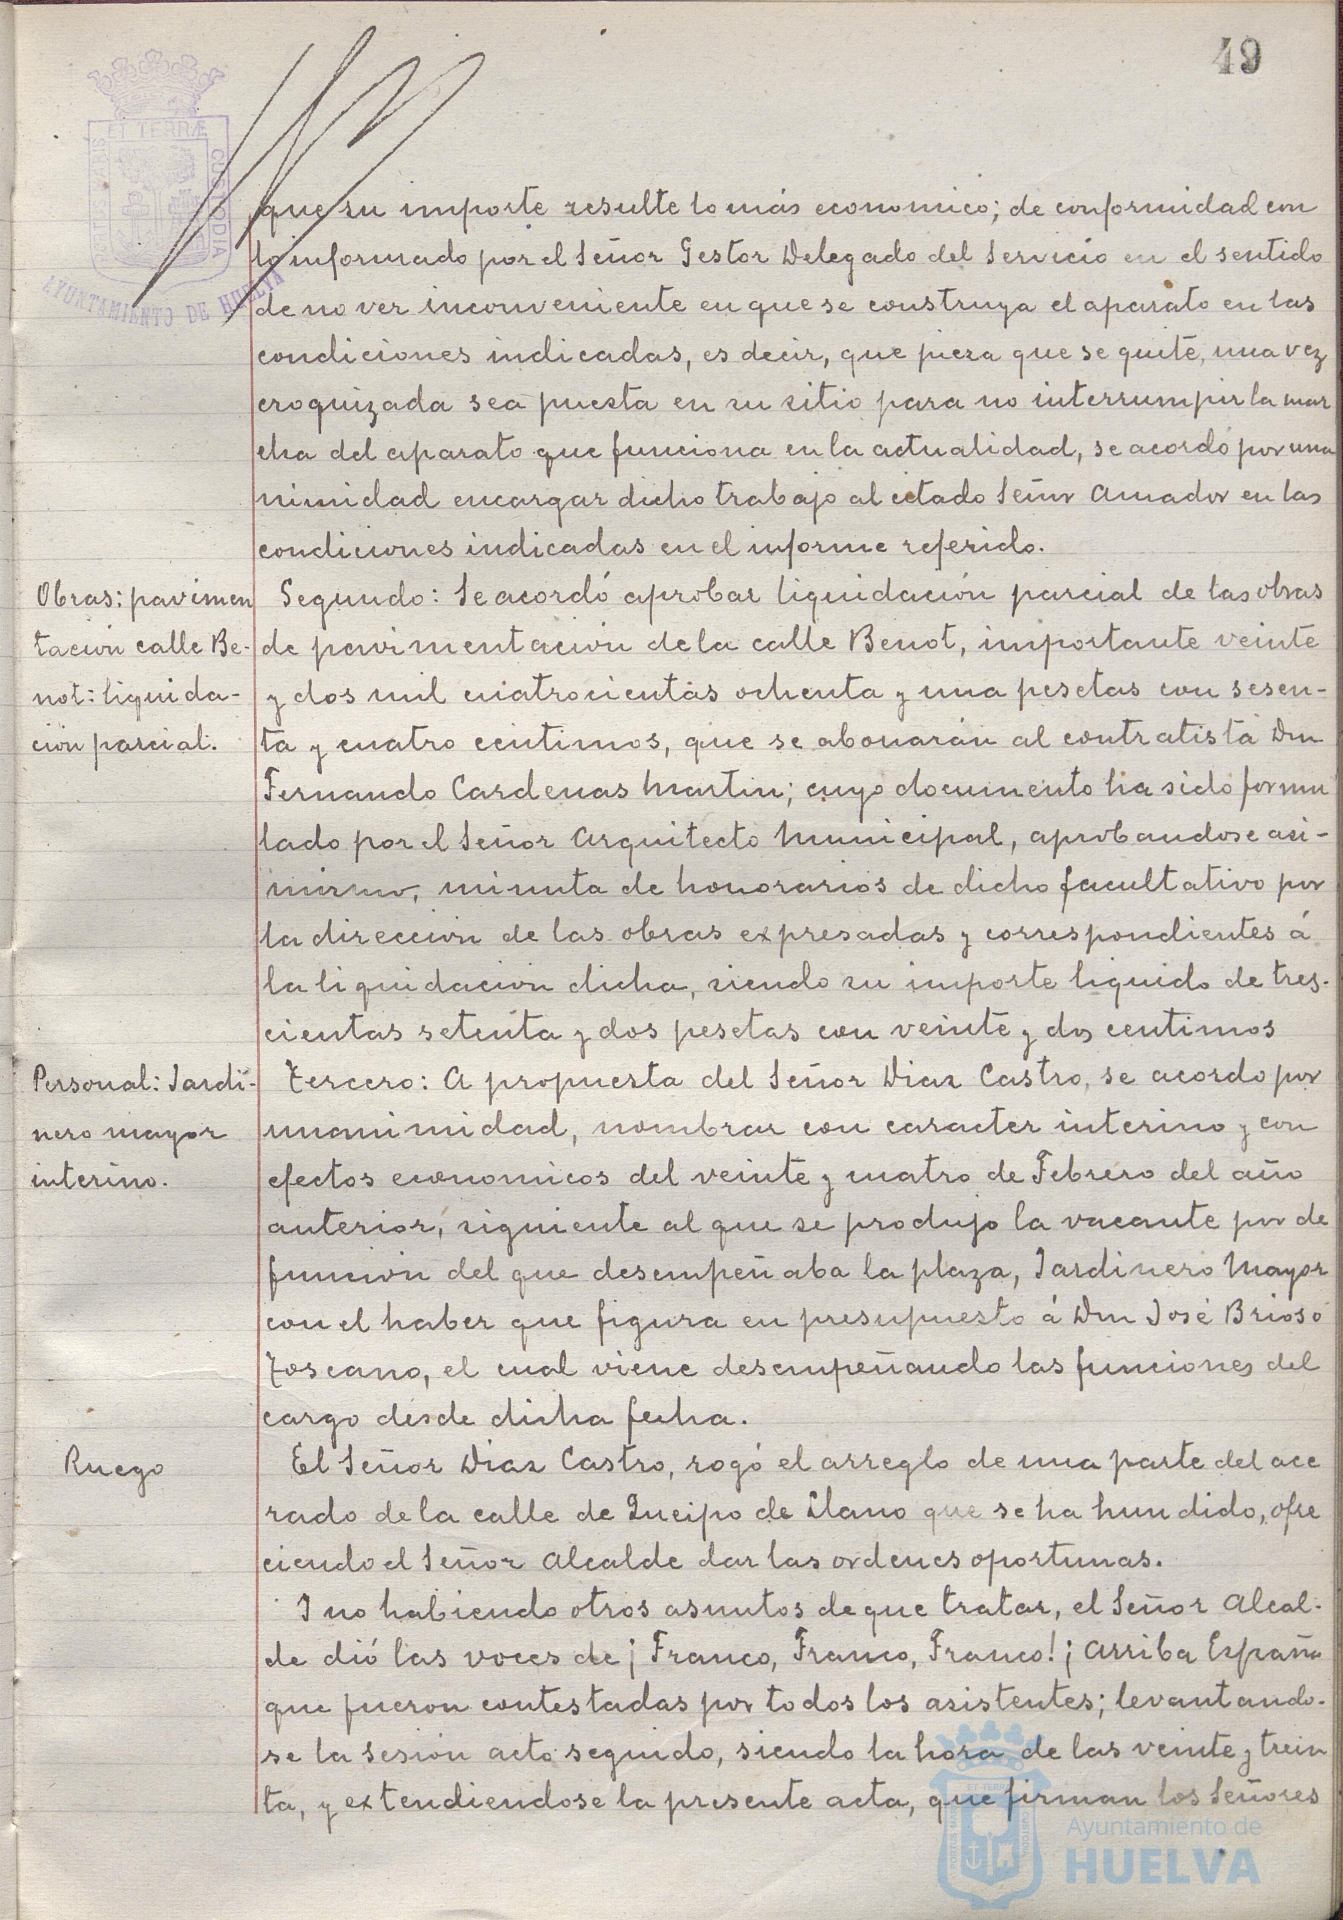 49
ET TERRÆ
CUSTODIA
AYUNTAMIENTO DE HUELVA
que su importe resulte lo más economico; de conformidad con
lo informado por el Señor Gestor Delegado del Servicio en el sentido
de no ver inconveniente en que se construya el aparato en las
condiciones indicadas, es decir, que pieza que se quite, una vez
croquizada sea puesta en su sitio para no interrumpir la mar
cha del aparato que funciona en la actualidad, se acordó por una
nimidad encargar dicho trabajo al citado Señor Amador en las
condiciones indicadas en el informe referido.
Obras: pavimen
tación calle Be-
not: liquida-
ción parcial.
Segundo: Se acordó aprobar liquidación parcial de las obras
de pavimentación de la calle Benot, importante veinte
y dos mil cuatrocientas ochenta y una pesetas con sesen-
ta y cuatro centimos, que se abonarán al contratista Don
Fernando Cardenas Martin; cuyo documento ha sido formu
lado por el Señor Arquitecto Municipal, aprobandose asi-
mismo, minuta de honorarios de dicho facultativo por
la dirección de las obras expresadas y correspondientes á
la liquidación dicha, siendo su importe liquido de tres-
cientas setenta y dos pesetas con veinte y dos centimos
Personal: Jardi-
nero mayor
interino.
Tercero: A propuesta del Señor Diaz Castro, se acordo por
unanimidad, nombrar con caracter interino y con
efectos economicos del veinte y cuatro de Febrero del año
anterior, siguiente al que se produjo la vacante por de
función del que desempeñaba la plaza, Jardinero Mayor
con el haber que figura en presupuesto á Don José Brioso
Toscano, el cual viene desempeñando las funciones del
cargo desde dicha fecha.
Ruego
El Señor Diaz Castro, rogó el arreglo de una parte del ace
rado de la calle de Queipo de Llano que se ha hundido, ofre
ciendo el Señor Alcalde dar las ordenes oportunas.
I no habiendo otros asuntos de que tratar, el Señor Alcal-
de dió las voces de ¡Franco, Franco, Franco! ¡Arriba España
que fueron contestadas por todos los asistentes; levantando-
se la sesión acto seguido, siendo la hora de las veinte y trein
ta, y extendiendose la presente acta, que firman los Señores
Ayuntamiento de
HUELVA